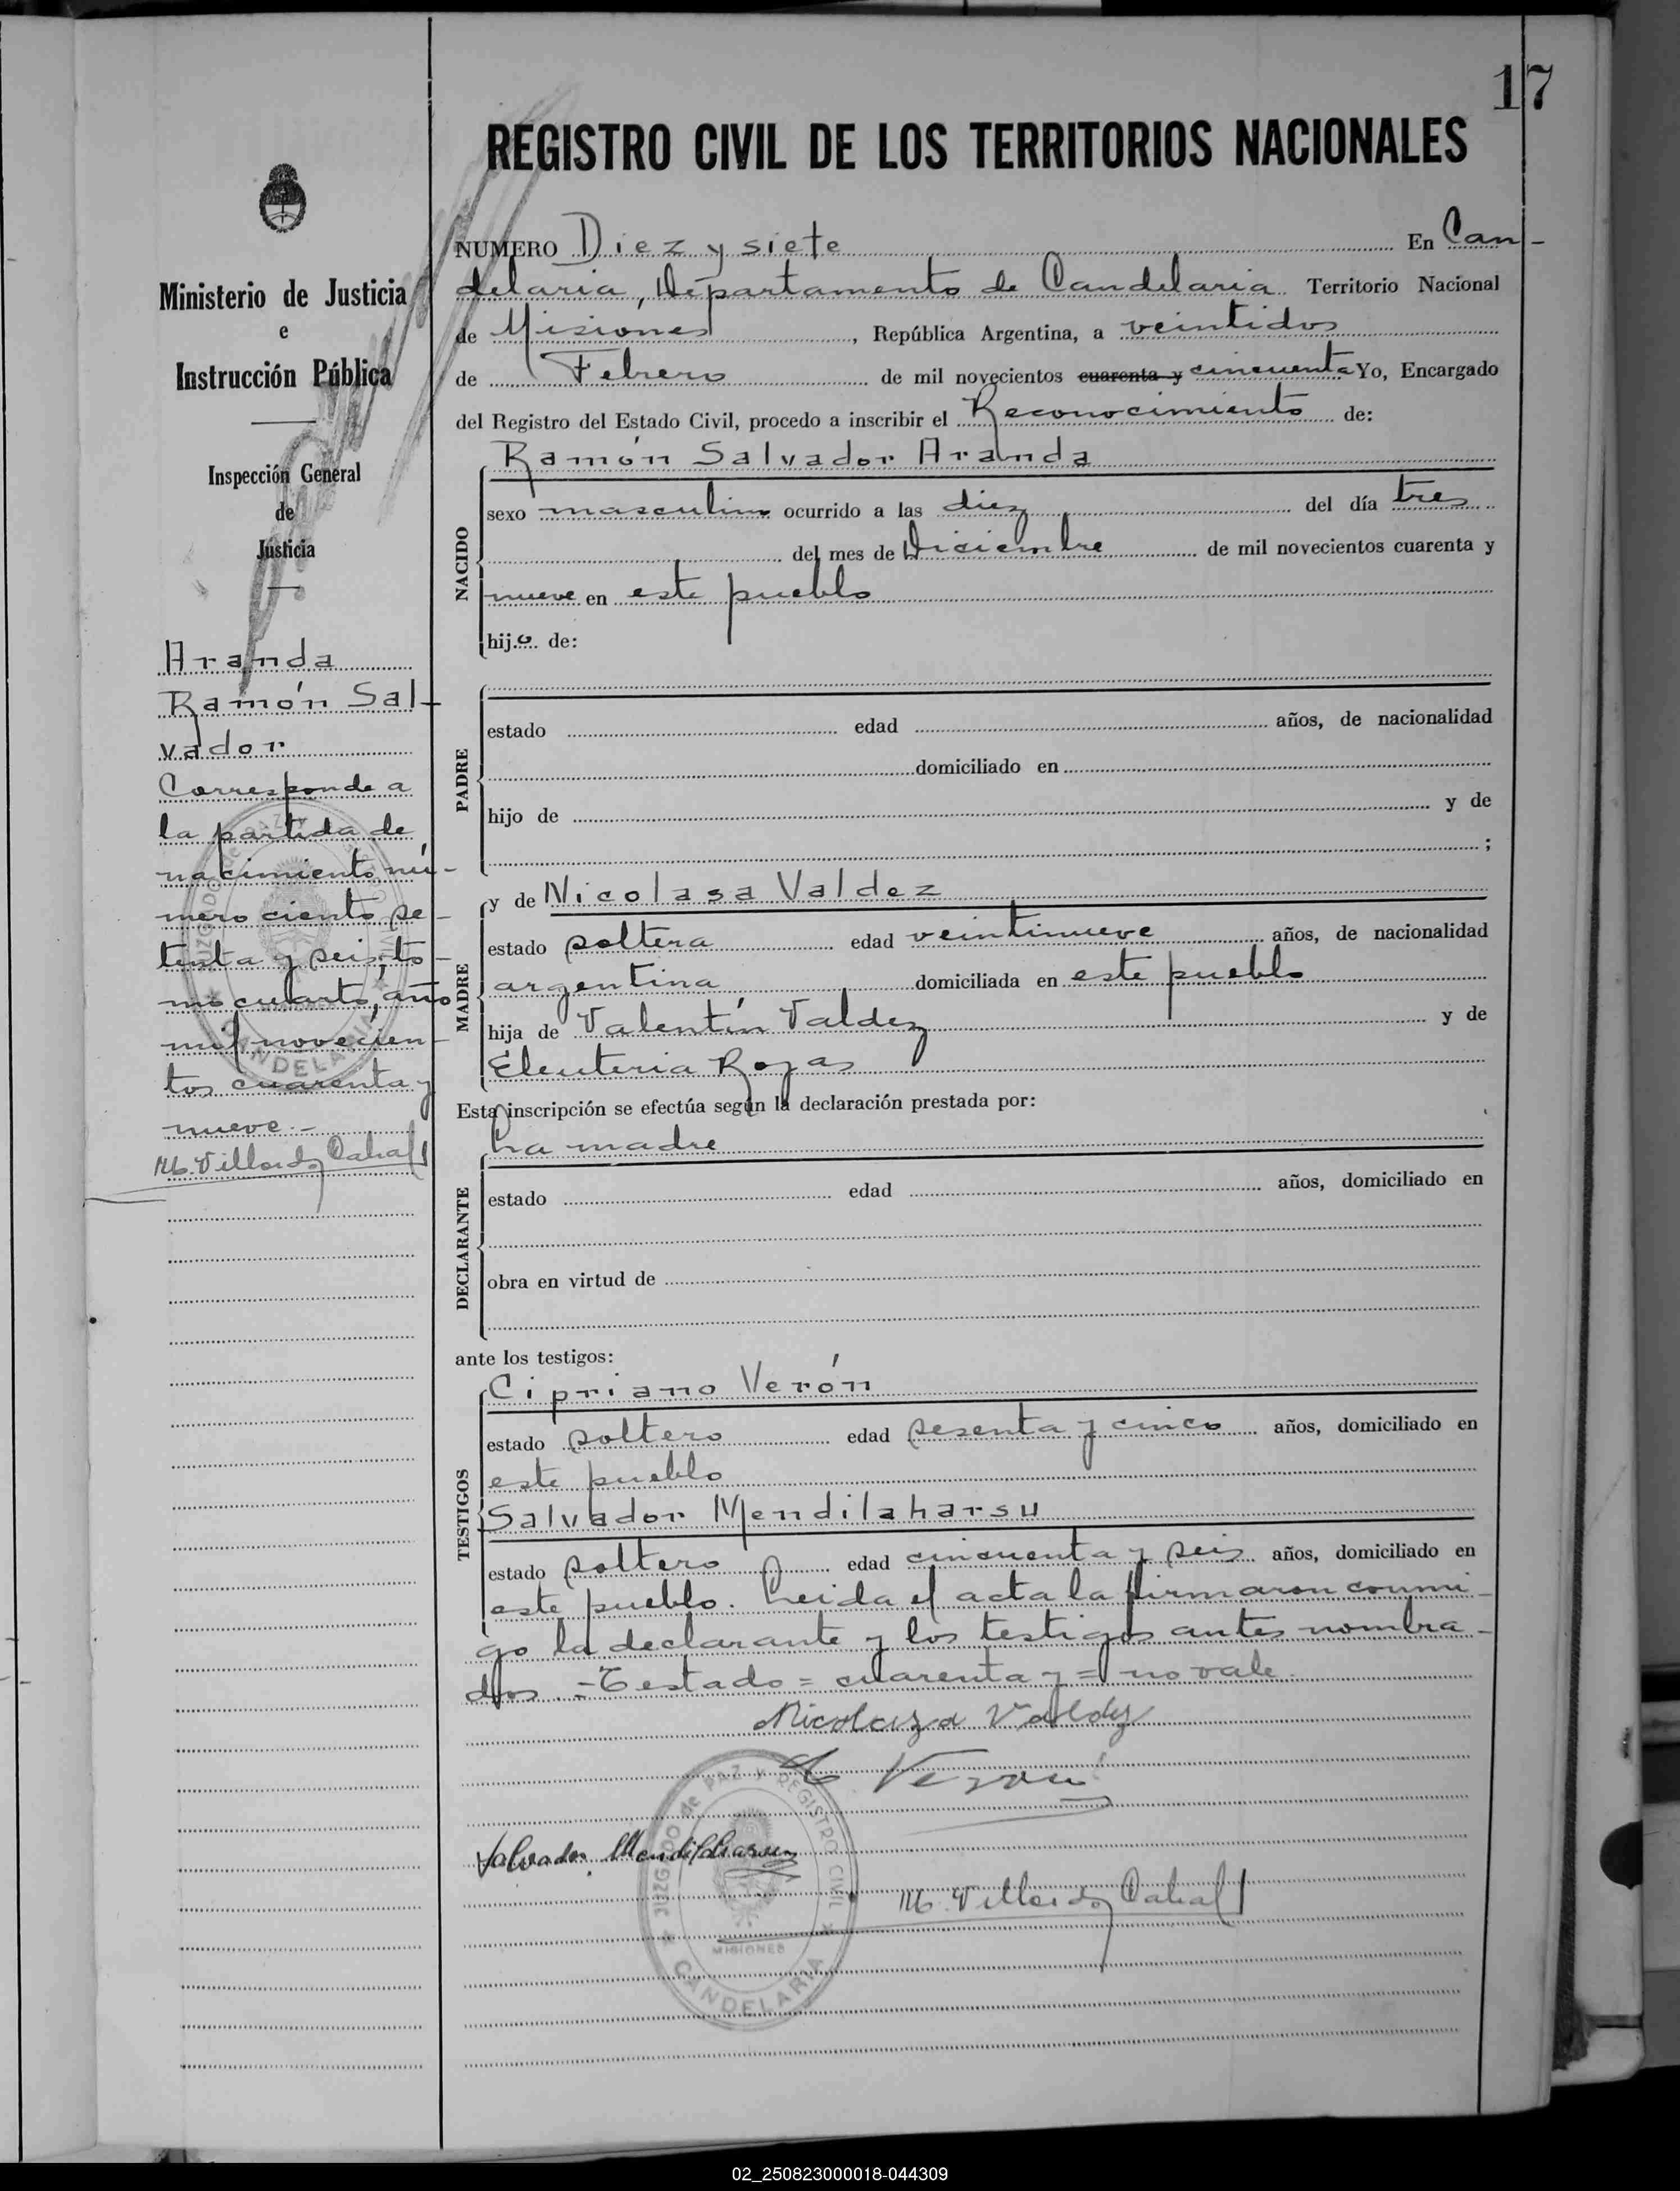 17
REGISTRO CIVIL DE LOS TERRITORIOS NACIONALES
Ministerio de Justicia
e
Instrucción Pública
Inspección General
de
Justicia
Aranda
Ramón Sal-
vador
Corresponde a
la partida de
nacimiento nú-
mero ciento se-
tenta y seis, to-
mo cuarto, año
mil novecien-
tos cuarenta y
nueve.-
NUMERO Diez y siete En Can-
delaria, Departamento de Candelaria Territorio Nacional
de Misiones, República Argentina, a veintidos
de Febrero de mil novecientos cuarenta y cincuenta Yo, Encargado
del Registro del Estado Civil, procedo a inscribir el Reconocimiento de:
Ramón Salvador Aranda
NACIDO
sexo masculino ocurrido a las diez del día tres
del mes de Diciembre de mil novecientos cuarenta y
nueve en este pueblo
hijo de:
PADRE
estado edad años, de nacionalidad
domiciliado en
hijo de y de
;
MADRE
y de Nicolasa Valdez
estado soltera edad veintinueve años, de nacionalidad
argentina domiciliada en este pueblo
hija de Valentín Valdez y de
Eleuteria Rojas
Esta inscripción se efectúa según la declaración prestada por:
La madre
DECLARANTE
estado edad años, domiciliado en
obra en virtud de
ante los testigos:
TESTIGOS
Cipriano Verón
estado soltero edad sesenta y cinco años, domiciliado en
este pueblo
Salvador Mendilaharsu
estado soltero edad cincuenta y seis años, domiciliado en
este pueblo. Leida el acta la firmaron conmi-
go la declarante y los testigos antes nombra-
dos.-Testado=cuarenta y=no vale.
Nicolaza Valdez
C Verón
Salvador Mendilaharsu
JUZGADO de PAZ Y REGISTRO CIVIL
MISIONES
CANDELARIA
02_250823000018-044309